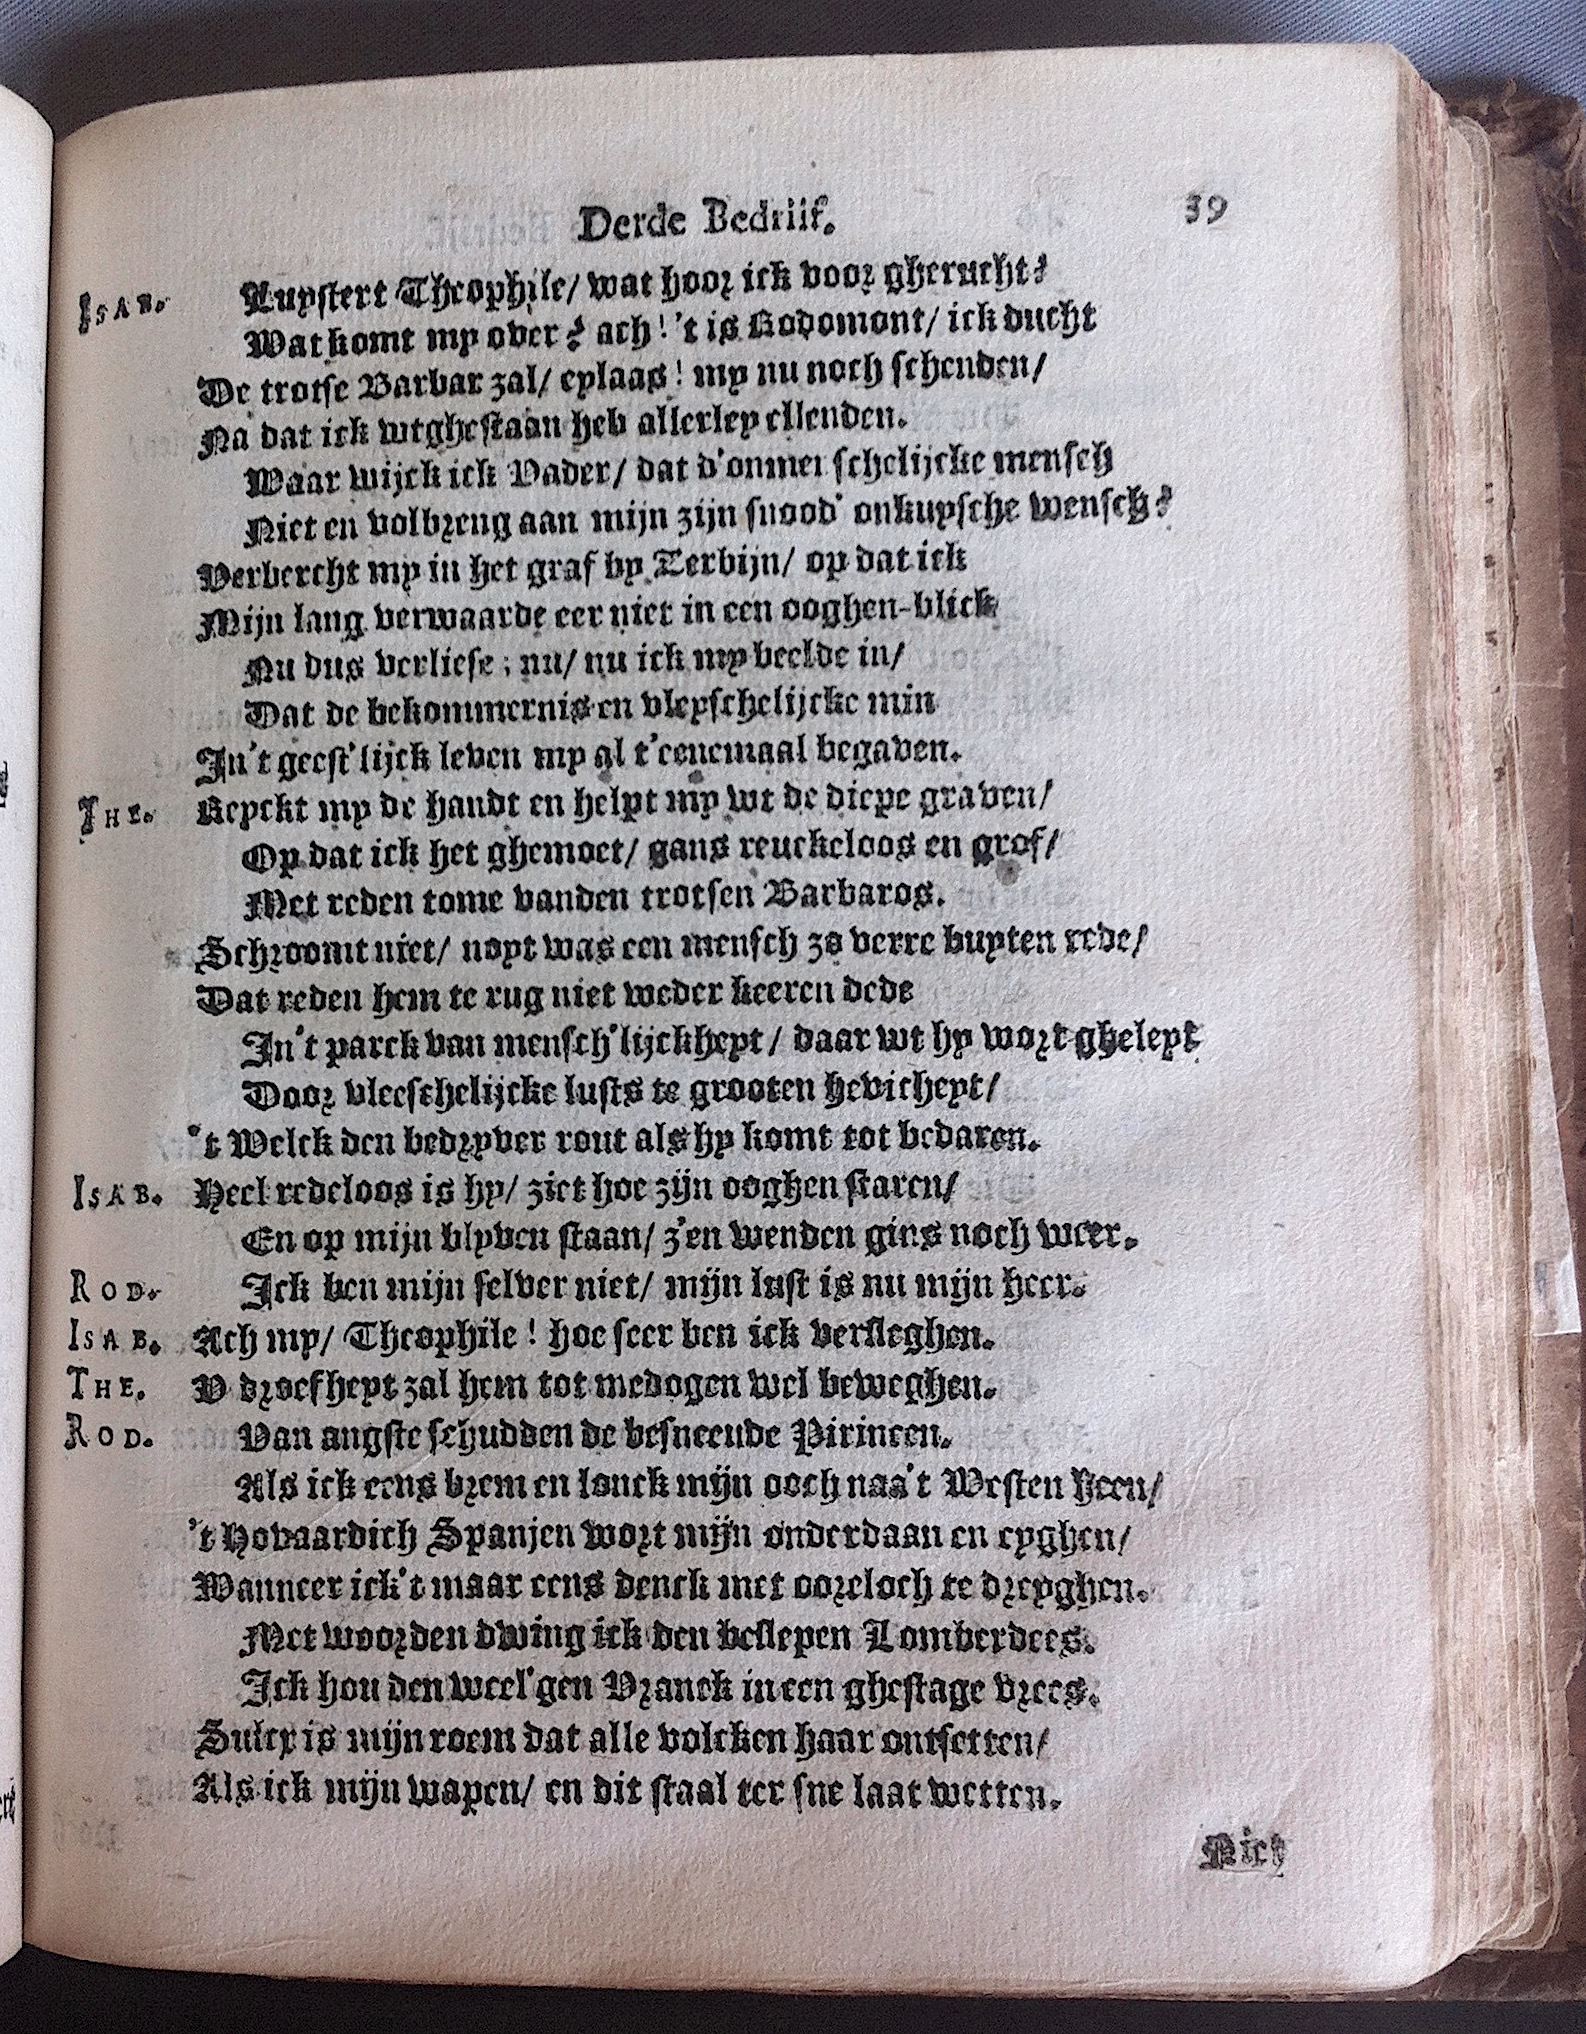 Derde Bedriif. 39
ISAB. Luystert Theophile/ wat hoor ick voor gherucht?
Wat komt my over? ach! 't is Rodomont/ ick ducht
De trotse Barbar zal/ eylaas! my nu noch schenden/
Na dat ick wtghestaan heb allerley ellenden.
Waar wijck ick Vader/ dat d'onmenschelijcke mensch
Niet en volbreng aan mijn zijn snood' onkuysche wensch?
Verbercht my in het graf by Zerbijn/ op dat ick
Mijn lang verwaarde eer niet in een ooghen-blick
Nu dus verliese; nu/ nu ick my beelde in/
Dat de bekommernis en vleyschelijcke min
In 't geest'lijck leven my al t'eenemaal begaven.
THE. Reyckt my de handt en helpt my wt de diepe graven/
Op dat ick het ghemoet/ gans reuckeloos en grof/
Met reden tome vanden trotsen Barbaros.
Schroomt niet/ noyt was een mensch zo verre buyten rede/
Dat reden hem te rug niet weder keeren dede
In 't parck van mensch'lijckheyt/ daar wt hy wort gheleyt
Door vleeschelijcke lusts te grooten hevicheyt/
't Welck den bedryver rout als hy komt tot bedaren.
ISAB. Heel redeloos is hy/ ziet hoe zijn ooghen staren/
En op mijn blyven staan/ z'en wenden gins noch weer.
ROD. Ick ben mijn selver niet/ mijn lust is nu mijn heer.
ISAB. Ach my/ Theophile! hoe seer ben ick versleghen.
THE. V droefheyt zal hem tot medogen wel beweghen.
ROD. Van angste schudden de besneeude Pirineen.
Als ick eens brem en lonck mijn ooch naa't Westen heen/
't Hovaardich Spanjen wort mijn onderdaan en eyghen/
Wanneer ick 't maar eens denck met ooreloch te dreyghen.
Met woorden dwing ick den beslepen Lomberdees.
Ick hou den weel'gen Vranck in een ghestage vrees.
Sulcx is mijn roem dat alle volcken haar ontsetten/
Als ick mijn wapen/ en dit staal ter sne laat wetten.
Niet